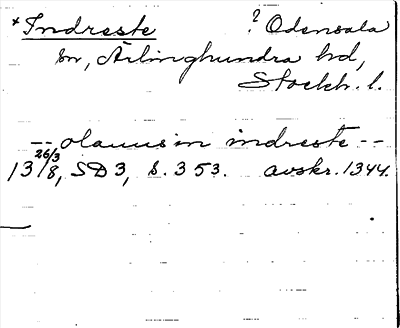 *Indreste ? Odensala
sn, Ärlinghundra hd,
Stockh. l.
-- olauus in indreste --
13 26/3 18, SD 3, s. 353. avskr. 1344.